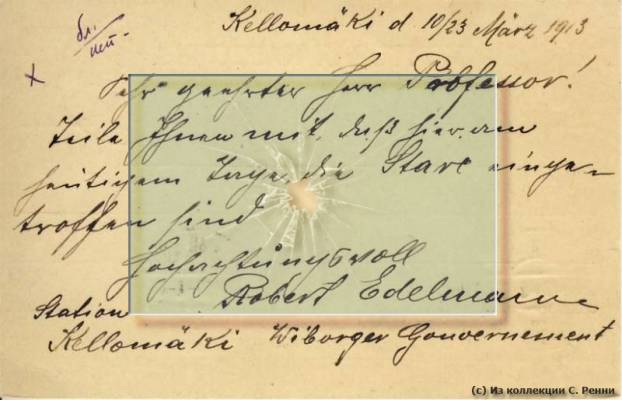 Kellomäki d 10/23 März 1913
Sehr geehrter Herr Professor!
Teile Ihnen mit, daß hier am
heutigem Tage die Stare einge-
troffen sind
Hochachtungsvoll
Robert Edelmann
Station
Kellomäki Wiborger Gouvernement
(c) Из коллекции С. Ренни